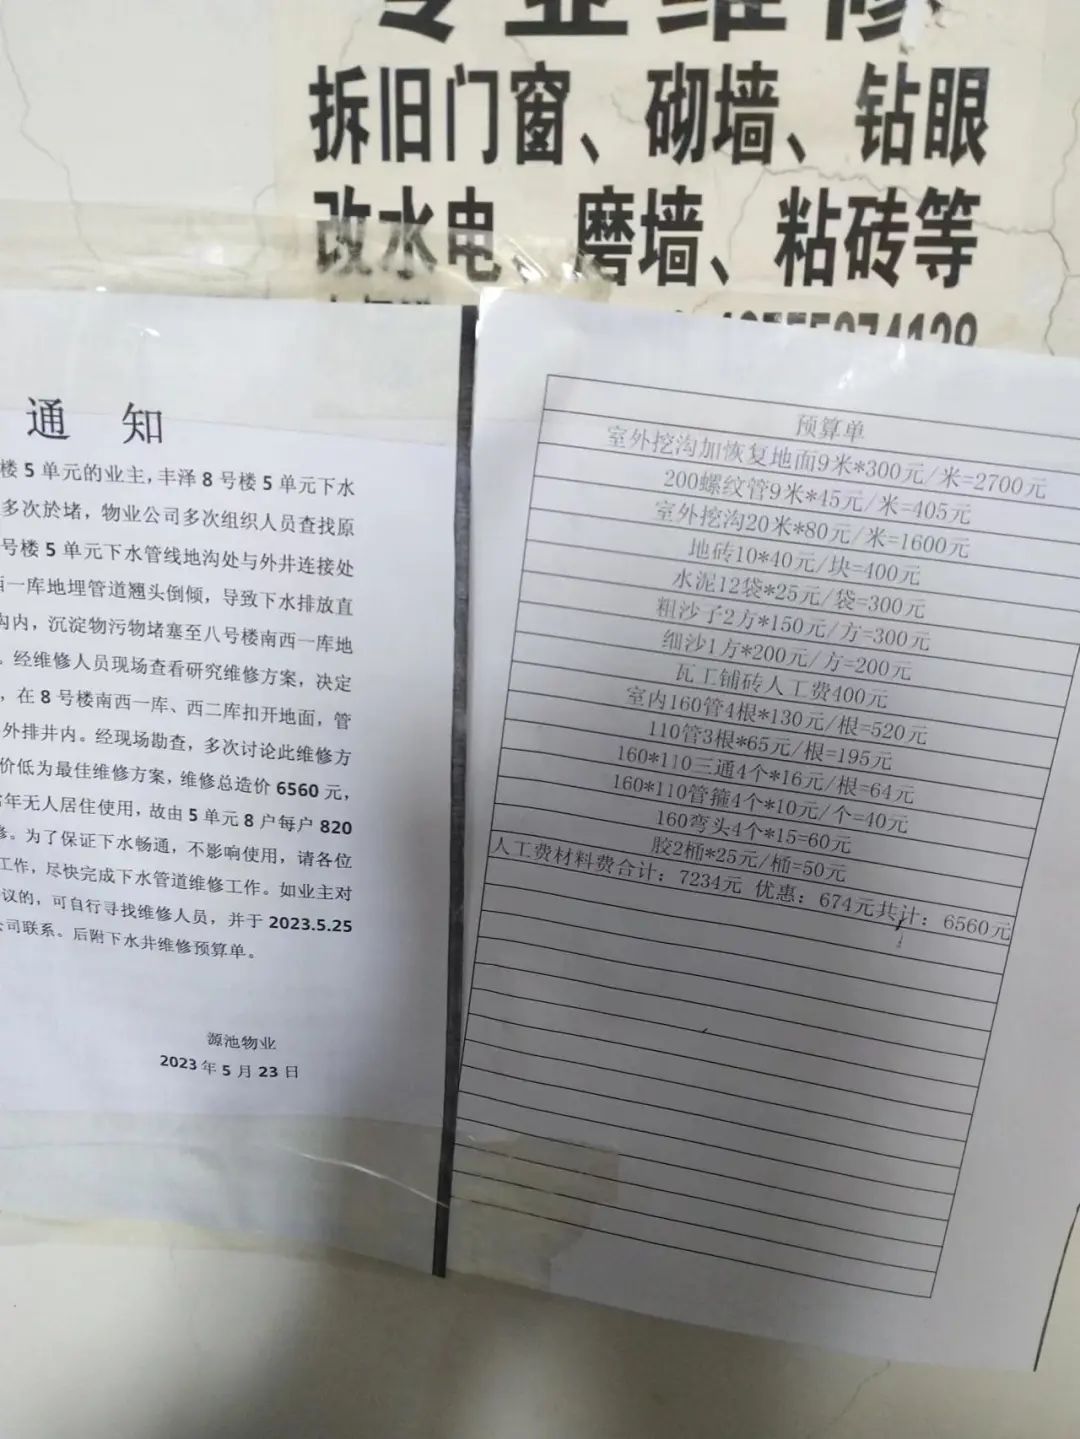 专业维修
拆旧门窗、砌墙、钻眼
改水电、磨墙、粘砖等
通 知
楼 5 单元的业主,丰泽 8 号楼 5 单元下水
多次於堵，物业公司多次组织人员查找原
号楼 5 单元下水管线地沟处与外井连接处
西一库地埋管道翘头倒倾，导致下水排放直
沟内，沉淀物污物堵塞至八号楼南西一库地
。经维修人员现场查看研究维修方案，决定
，在 8 号楼南西一库、西二库扣开地面，管
外排井内。经现场勘查，多次讨论此维修方
价低为最佳维修方案，维修总造价 6560 元，
常年无人居住使用，故由 5 单元 8 户每户 820
修。为了保证下水畅通，不影响使用，请各位
工作，尽快完成下水管道维修工作。如业主对
议的，可自行寻找维修人员，并于 2023.5.25
公司联系。后附下水井维修预算单。
源池物业
2023 年 5 月 23 日
预算单
室外挖沟加恢复地面9米*300元/米=2700元
200螺纹管9米*45元/米=405元
室外挖沟20米*80元/米=1600元
地砖10*40元/块=400元
水泥12袋*25元/袋=300元
粗沙子2方*150元/方=300元
细沙1方*200元/方=200元
瓦工铺砖人工费400元
室内160管4根*130元/根=520元
110管3根*65元/根=195元
160*110三通4个*16元/根=64元
160*110管箍4个*10元/个=40元
160弯头4个*15=60元
胶2桶*25元/桶=50元
人工费材料费合计：7234元 优惠：674元共计：6560元